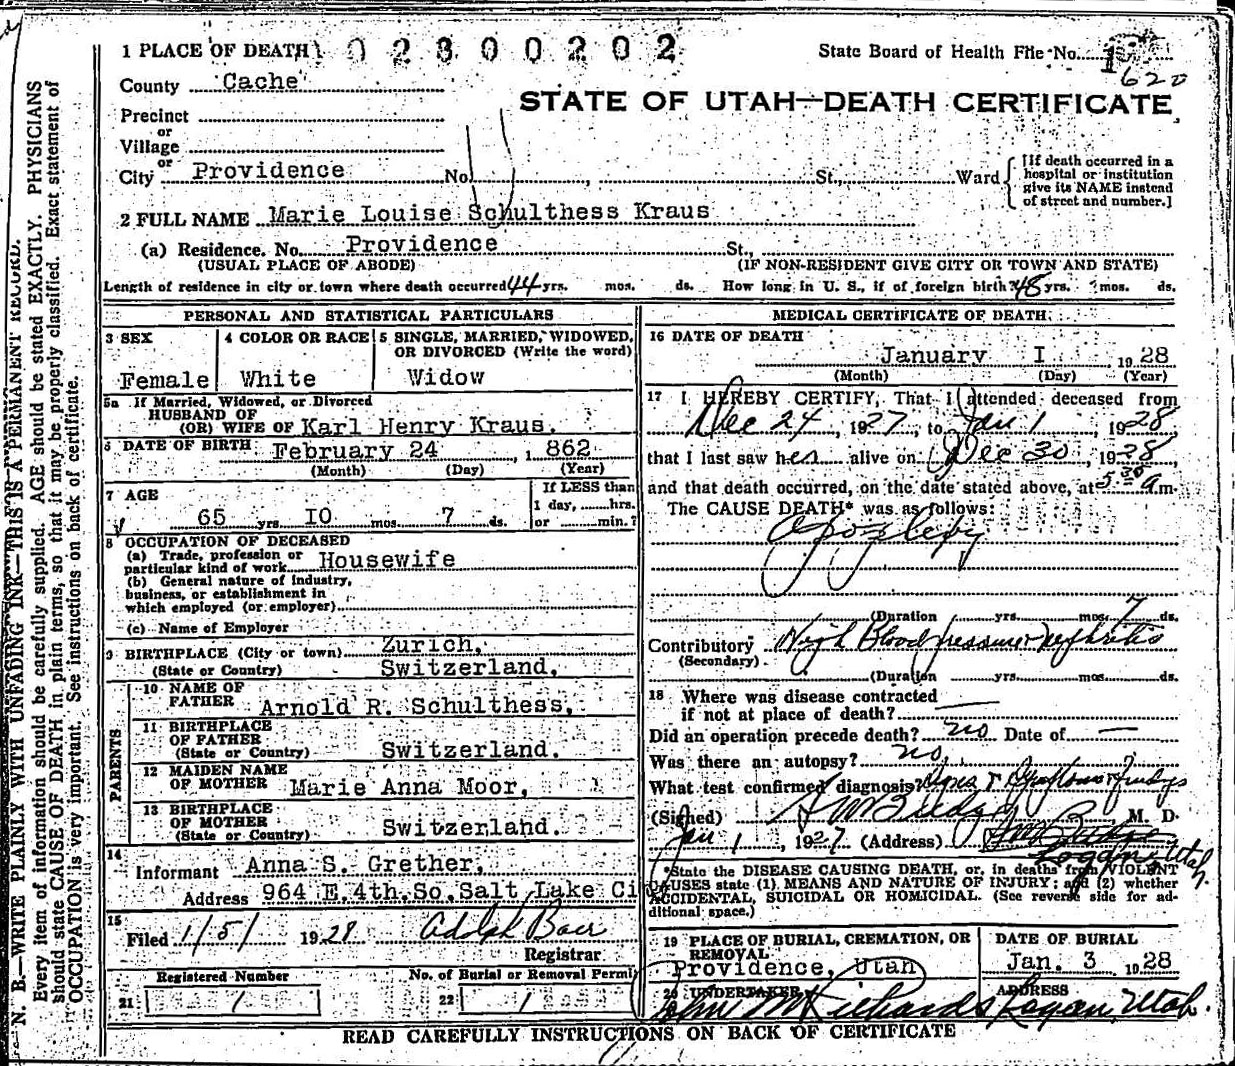 1 PLACE OF DEATH 02300202 State Board of Health File No. 1
620
County Cache
STATE OF UTAH—DEATH CERTIFICATE
Precinct
or
Village
or
City Providence No. , St., Ward
[If death occurred in a
hospital or institution
give its NAME instead
of street and number.]
2 FULL NAME Marie Louise Schulthess Kraus
(a) Residence. No. Providence St.,
(USUAL PLACE OF ABODE) (IF NON-RESIDENT GIVE CITY OR TOWN AND STATE)
Length of residence in city or town where death occurred 44 yrs. mos. ds. How long in U. S., if of foreign birth? 48 yrs. mos. ds.
PERSONAL AND STATISTICAL PARTICULARS
3 SEX 4 COLOR OR RACE 5 SINGLE, MARRIED, WIDOWED,
OR DIVORCED (Write the word)
Female White Widow
5a If Married, Widowed, or Divorced
HUSBAND OF
(OR) WIFE OF Karl Henry Kraus.
6 DATE OF BIRTH February 24 , 1 862
(Month) (Day) (Year)
7 AGE If LESS than
1 day, hrs.
65 yrs. IO mos. 7 ds. or min.?
8 OCCUPATION OF DECEASED
(a) Trade, profession or
particular kind of work Housewife
(b) General nature of industry,
business, or establishment in
which employed (or employer)
(c) Name of Employer
9 BIRTHPLACE (City or town) Zurich,
(State or Country) Switzerland,
PARENTS
10 NAME OF
FATHER Arnold R. Schulthess,
11 BIRTHPLACE
OF FATHER
(State or Country) Switzerland.
12 MAIDEN NAME
OF MOTHER Marie Anna Moor,
13 BIRTHPLACE
OF MOTHER
(State or Country) Switzerland.
14
Informant Anna S. Grether,
Address 964 E.4th.So.Salt Lake Ci
15
Filed 1/5/ 1928 Adolph Baer
Registrar
Registered Number No. of Burial or Removal Permi
21 1 22 1
MEDICAL CERTIFICATE OF DEATH
16 DATE OF DEATH
January I 1928
(Month) (Day) (Year)
17 I HEREBY CERTIFY, That I attended deceased from
Dec 24, 1927, to Jan 1, 1928
that I last saw her alive on Dec 30, 1928,
and that death occurred, on the date stated above, at 5 30 a.m.
The CAUSE DEATH* was as follows:
Apoplexy
(Duration yrs. mos. 7 ds.
Contributory High Blood pressure Nephritis
(Secondary)
(Duration yrs. mos. ds.
18 Where was disease contracted
if not at place of death? —
Did an operation precede death? no Date of —
Was there an autopsy? no
What test confirmed diagnosis? Signs & Symptoms Findings
(Signed) Budge M. D.
Jan 1, 1927 (Address)
Logan, Utah.
*State the DISEASE CAUSING DEATH, or, in deaths from VIOLENT
CAUSES state (1) MEANS AND NATURE OF INJURY; and (2) whether
ACCIDENTAL, SUICIDAL OR HOMICIDAL. (See reverse side for ad-
ditional space.)
19 PLACE OF BURIAL, CREMATION, OR
REMOVAL DATE OF BURIAL
Providence, Utah Jan. 3 1928
20 UNDERTAKER ADDRESS
John M Richards Logan, Utah.
READ CAREFULLY INSTRUCTIONS ON BACK OF CERTIFICATE
N. B.—WRITE PLAINLY WITH UNFADING INK—THIS IS A PERMANENT RECORD.
Every item of information should be carefully supplied. AGE should be stated EXACTLY. PHYSICIANS
should state CAUSE OF DEATH in plain terms, so that it may be properly classified. Exact statement of
OCCUPATION is very important. See instructions on back of certificate.